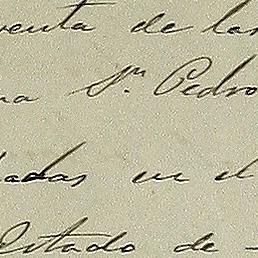 venta de las
na Sn. Pedro
adas en el
Estado de